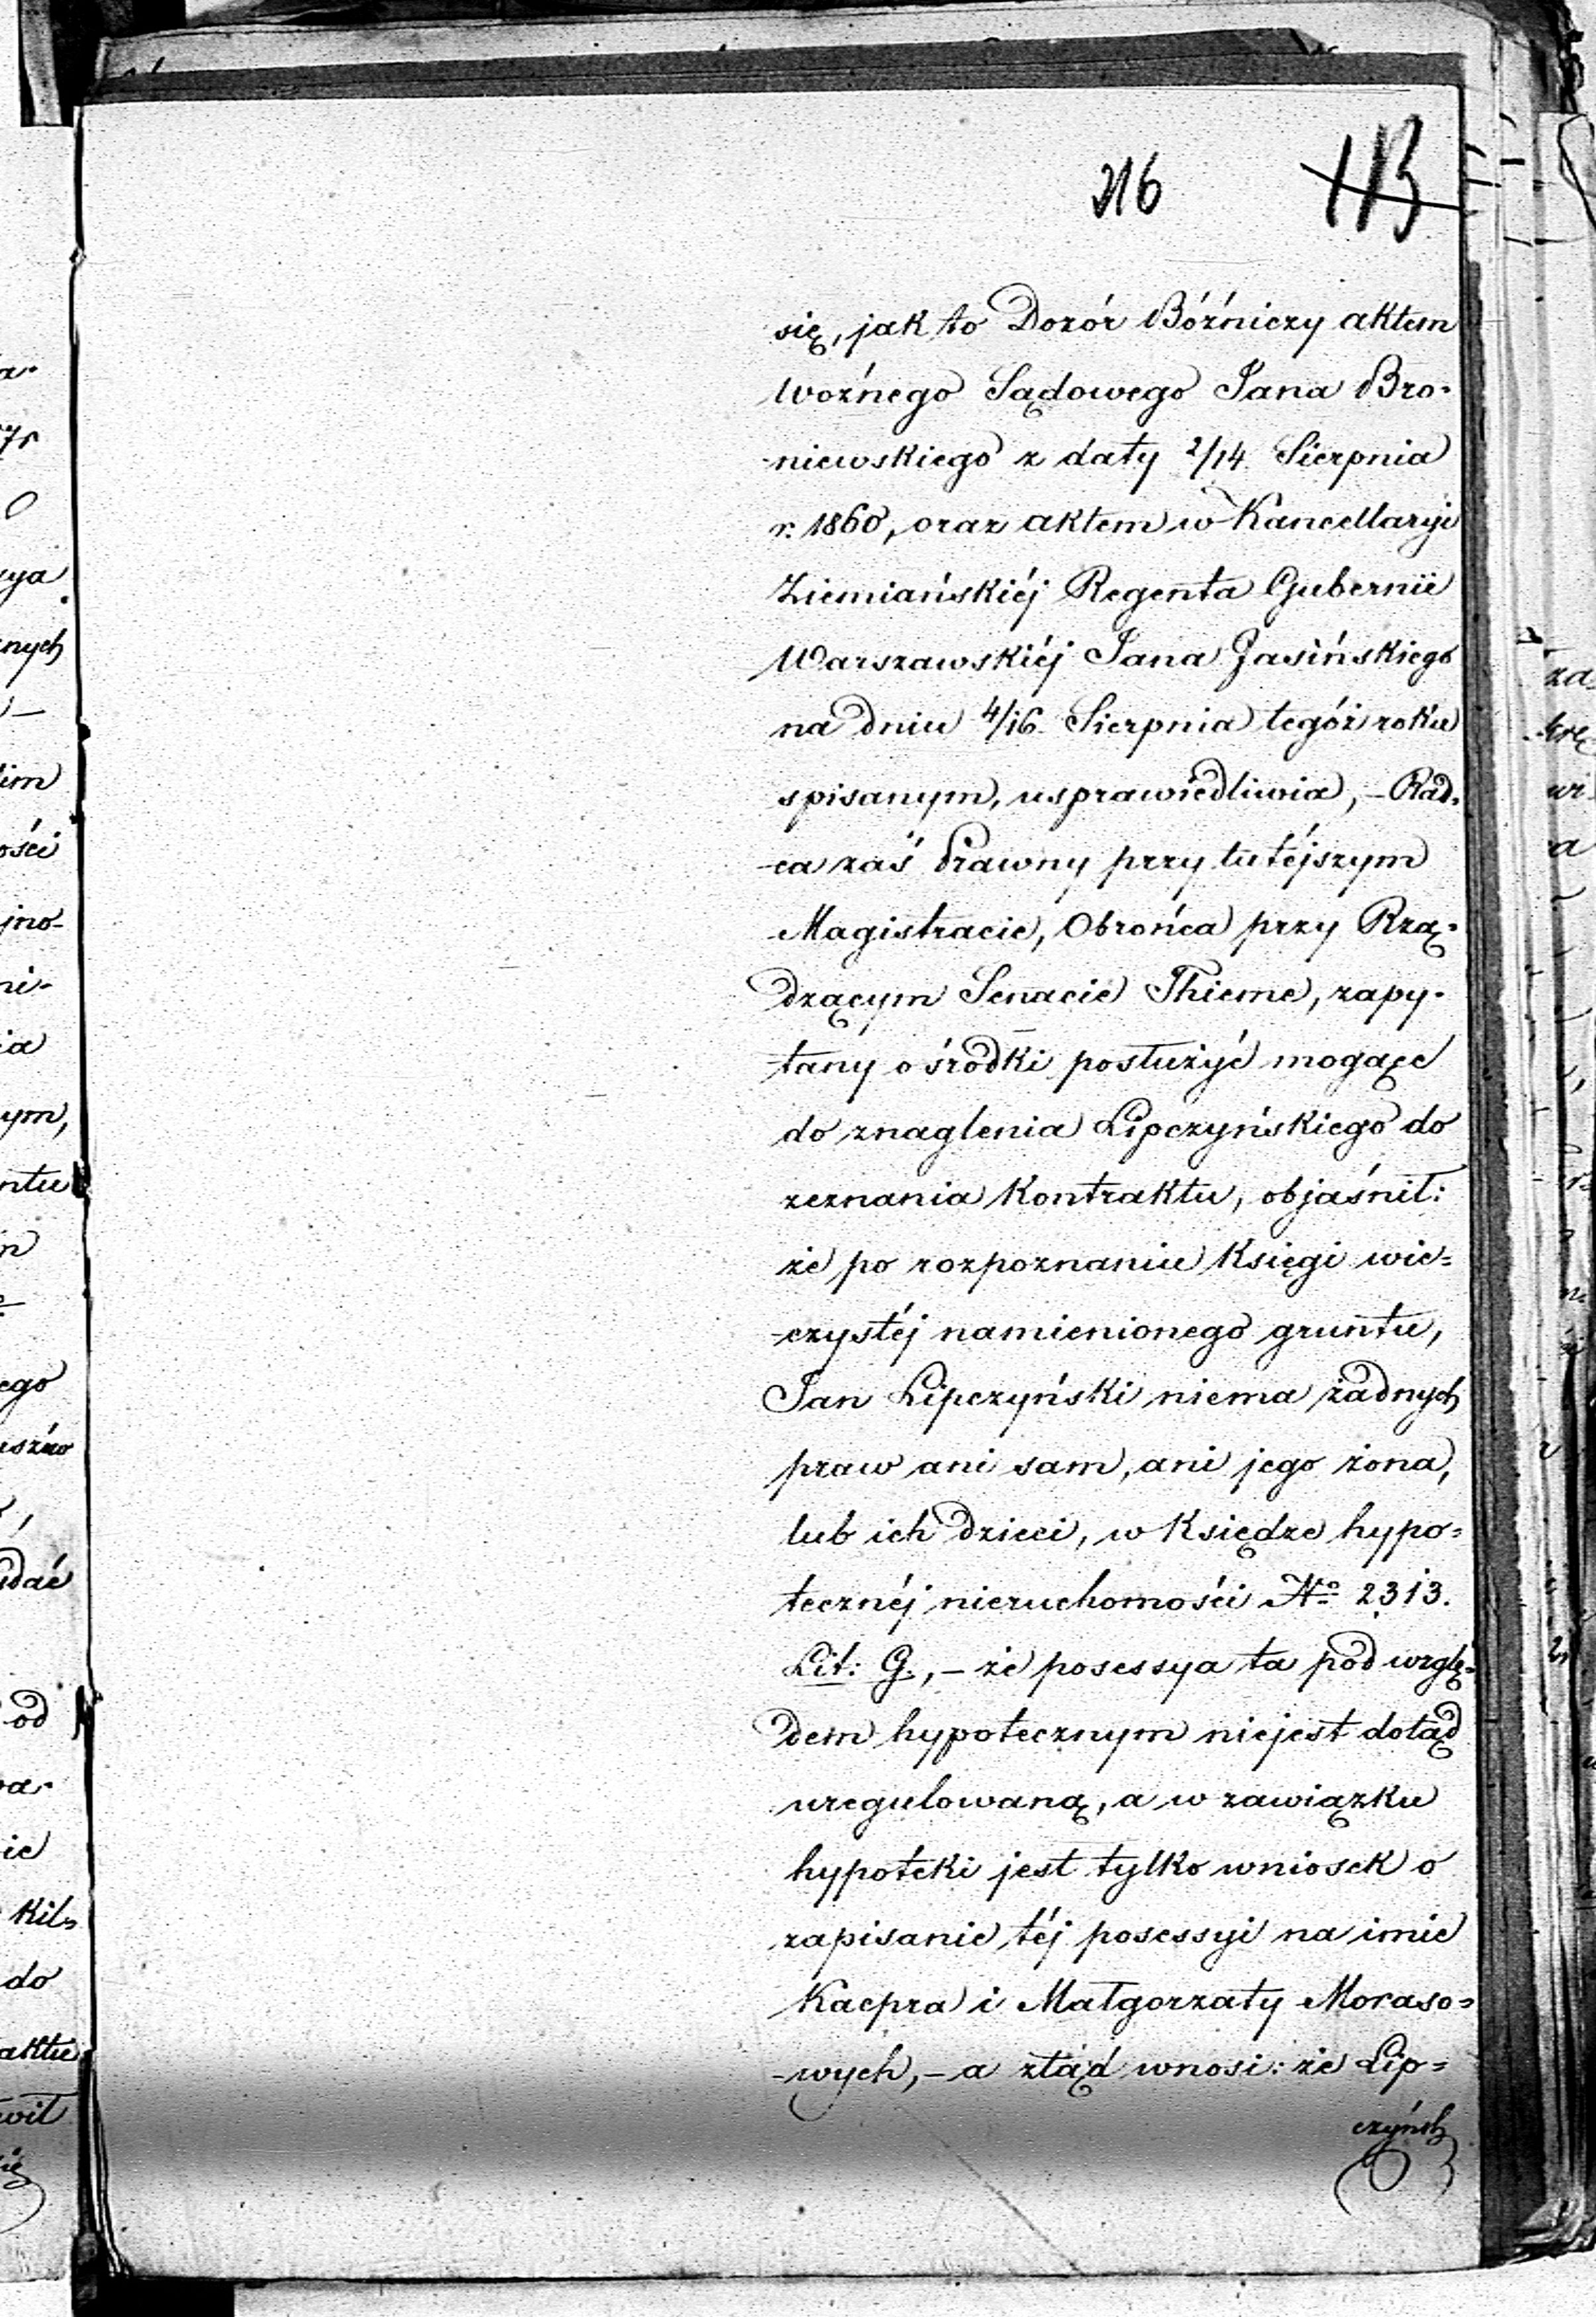 216 113
się, jak to Dozór Bóźniczy aktem
Woźnego Sądowego Jana Bro-
niewskiego z daty 2/14 Sierpnia
r. 1860, oraz aktem w Kancellaryi
Ziemiańskiéj Regenta Gubernii
Warszawskiéj Jana Jasińskiego
na dniu 4/16 Sierpnia tegóż roku
spisanym, usprawiedliwia, – Rad-
-ca zaś Prawny przy tutéjszym
Magistracie, Obrońca przy Rzą-
dzącym Senacie Thieme, zapy-
tany o środki posłużyć mogące
do znaglenia Lipczyńskiego do
zeznania Kontraktu, objaśnił:
że po rozpoznaniu Księgi wie=
-czystéj namienionego gruntu,
Jan Lipczyński niema żadnych
praw ani sam, ani jego żona,
lub ich dzieci, w Księdze hypo=
tecznéj nieruchomości No 2313.
Lit: G., – że posessya ta pod wzglę-
dem hypotecznym niejest dotąd
uregulowaną, a w zawiązku
hypoteki jest tylko wniosek o
zapisanie téj posessyi na imie
Kacpra i Małgorzaty Moraso=
-wych, – a ztąd wnosi: że Lip=
czyńsk